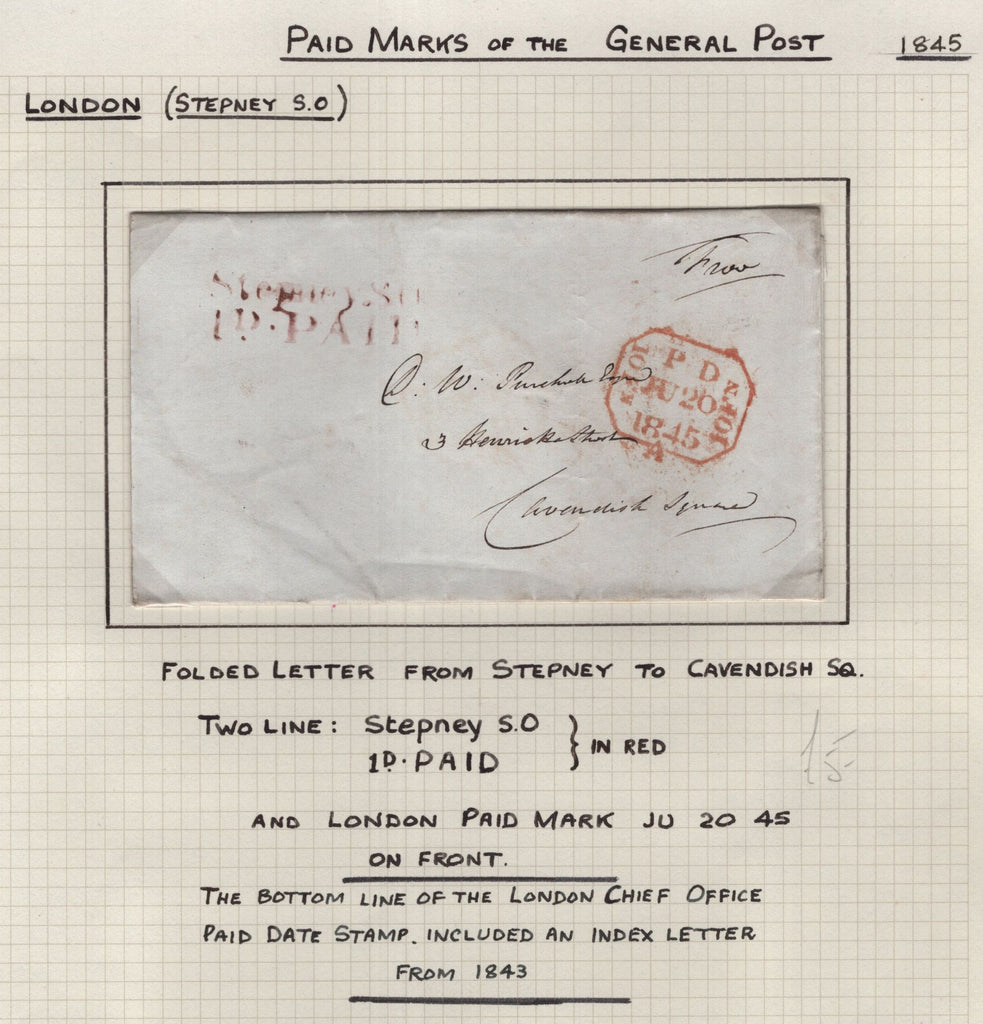 PAID MARKS OF THE GENERAL POST 1845
LONDON (STEPNEY S.O)
Stepney S.O
1D. PAID
D. W. Esqre
23 Henrietta Street
Cavendish Square
P D
JU 20
1845
A
FOLDED LETTER FROM STEPNEY TO CAVENDISH SQ.
TWO LINE: Stepney S.O
1D. PAID } IN RED
AND LONDON PAID MARK JU 20 45
ON FRONT.
THE BOTTOM LINE OF THE LONDON CHIEF OFFICE
PAID DATE STAMP. INCLUDED AN INDEX LETTER
FROM 1843